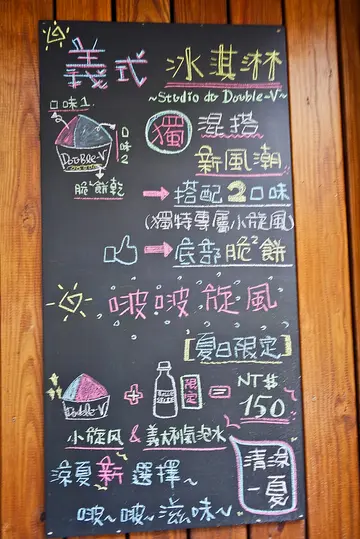 義式 冰淇淋
~Studio du Double-V~
口味1
口味2
Double-V
脆²餅乾
獨 混搭
新風潮
搭配2口味
(獨特專屬小旋風)
底部脆²餅
啵啵旋風
[夏日限定]
Double-V
限定
NT$
150
小旋風 & 義大利氣泡水
涼夏新選擇~
清涼
一夏
啵~啵~滋味~